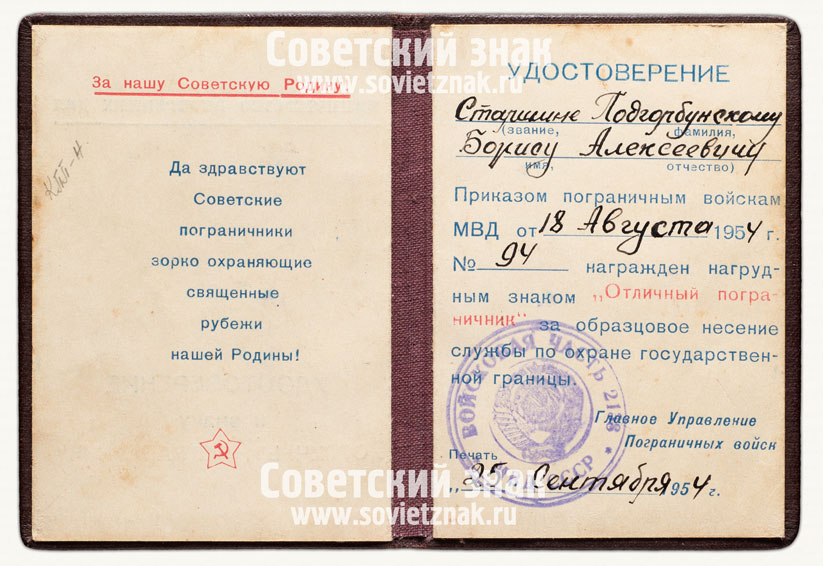 Советский знак
www.sovietznak.ru
За нашу Советскую Родину!
Да здравствуют
Советские
пограничники
зорко охраняющие
священные
рубежи
нашей Родины!
УДОСТОВЕРЕНИЕ
Старшине Подгорбунскому
(звание, фамилия,
Борису Алексеевичу
имя, отчество)
Приказом пограничным войскам
МВД от 18 Августа 1954 г.
№ 94 награжден нагруд-
ным знаком „Отличный погра-
ничник“ за образцовое несение
службы по охране государствен-
ной границы.
ВОЙСКОВАЯ ЧАСТЬ
СССР
Главное Управление
Пограничных войск
Печать
„25 Сентября 1954 г.
Советский знак
www.sovietznak.ru